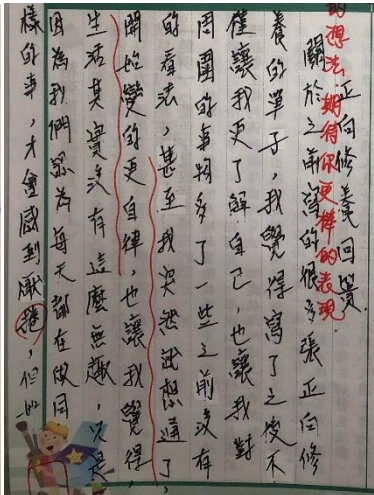 正向修養回饋
的想法,期待你更棒的表現.
關於之前寫的很多張正向修
養的單子,我覺得寫了之後不
僅讓我更了解自己,也讓我對
周圍的事物多了一些之前沒有
的看法,甚至我突然就想通了,
開始變的更自律,也讓我覺得,
生活其實沒有這麼無趣,只是
因為我們認為每天都在做同
樣的事,才會感到厭捲,但